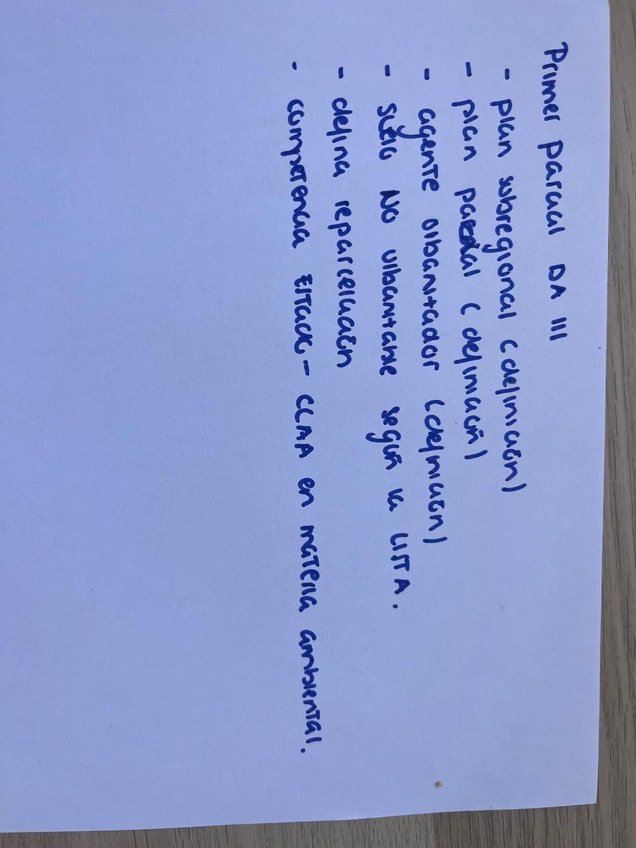 Primer parcial DA III
- plan subregional (definición)
- plan parcial (definición)
- agente urbanizador (definición)
- suelo NO urbanizable según la LISTA.
- defina reparcelación
- competencia Estado - CCAA en materia ambiental.